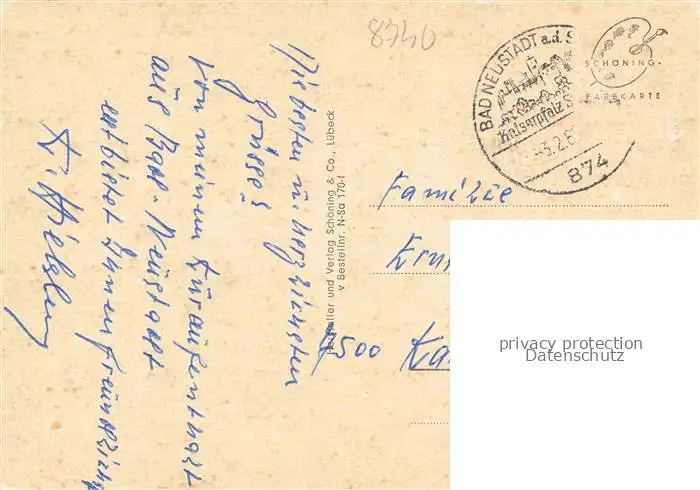 8740
BAD NEUSTADT a.d. S
Kaiserpfalz
-3.2.6
874
SCHÖNING-
FARBKARTE
Die besten u. herzlichsten
Grüsse!
von meinem Kuraufenthalt
aus Bad-Neustadt
entbietet Ihnen freundlichst
K.
Hersteller und Verlag Schöning & Co., Lübeck
v Bestellnr. N-Sa 170-f
Familie
7500 Ka
privacy protection
Datenschutz